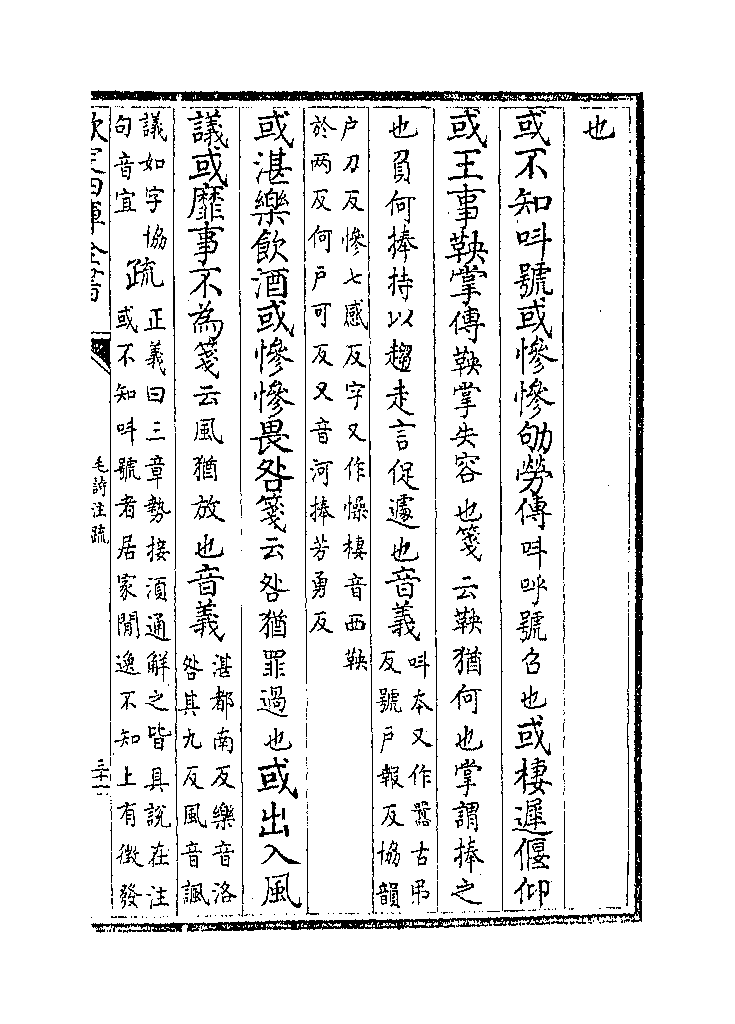 也
或不知呌號或慘慘劬勞傳呌呼號召也或棲遲偃仰
或王事鞅掌傳鞅掌失容也箋云鞅猶何也掌謂捧之
也負何捧持以趨走言促遽也音義呌本又作嚻古弔
反號戶報反協韻
戶刀反慘七感反字又作懆棲音西鞅
於两反何戶可反又音河捧芳勇反
或湛樂飲酒或慘慘畏咎箋云咎猶罪過也或出入風
議或靡事不為箋云風猶放也音義湛都南反樂音洛
咎其九反風音諷
議如字協
句音宜
疏正義曰三章勢接須通解之皆具說在注
或不知呌號者居家閒逸不知上有徵發
欽定四庫全書
毛詩注疏
三十一